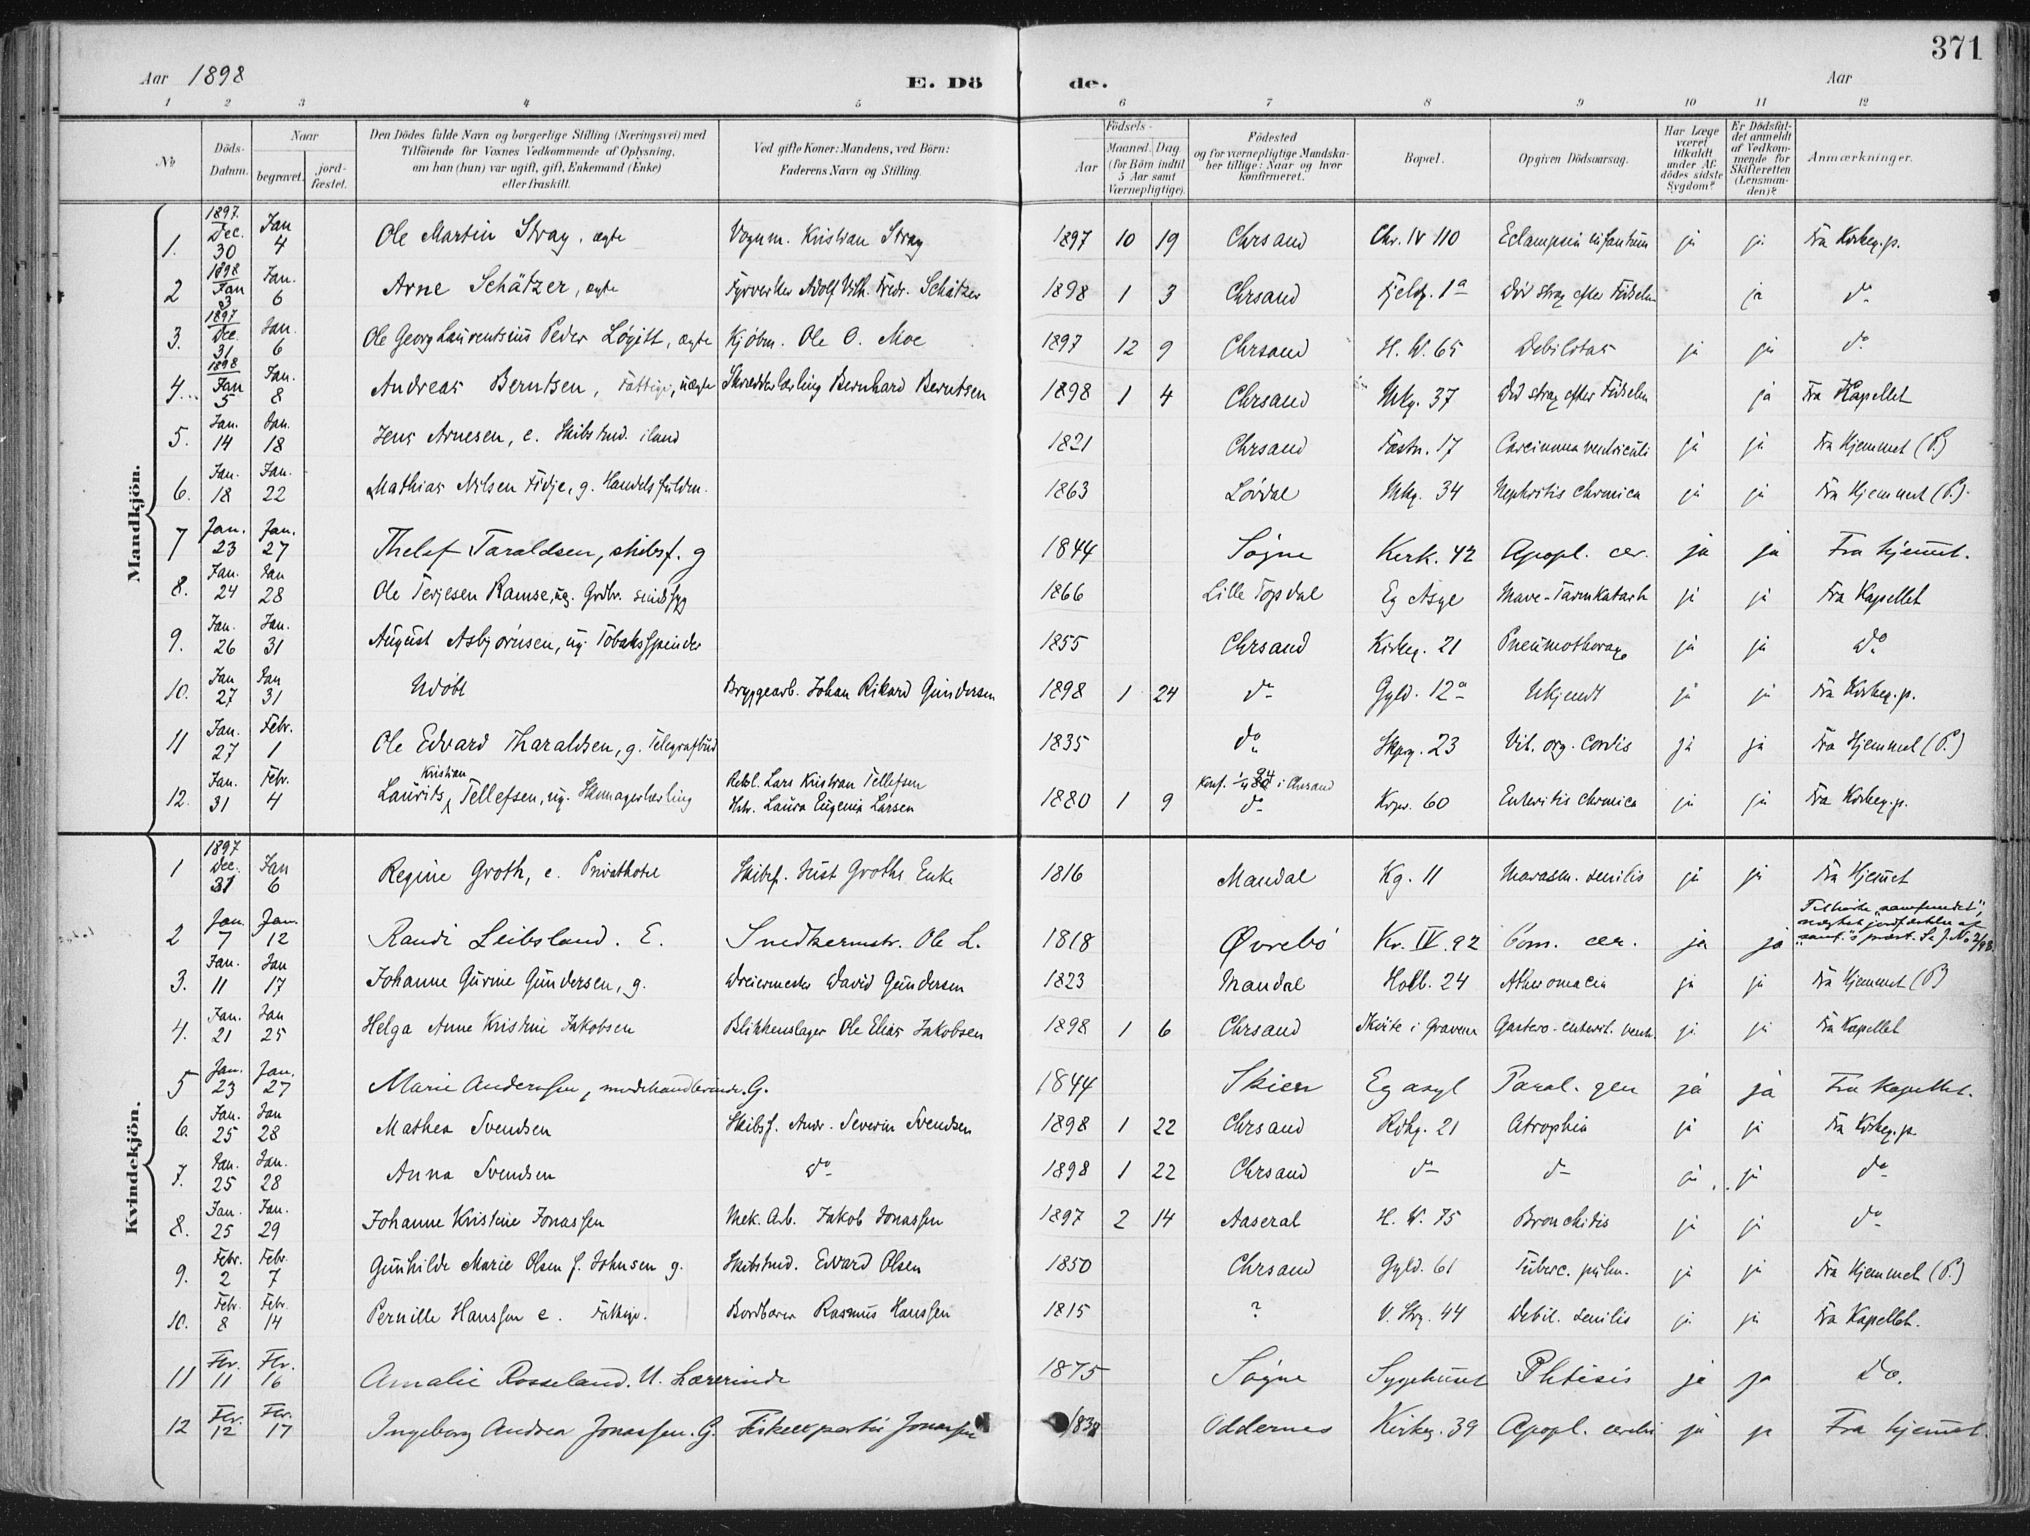 371
Aar 1898 E. Dö de. Aar
1 2 3 4 5 6 7 8 9 10 11 12
No
Döds-Datum.
Naar
begravet.
jordfæstet.
Den Dödes fulde Navn og borgerlige Stilling (Næringsvei) med Tilföiende for Voxnes Vedkommende af Oplysning, om han (hun) var ugift, gift, Enkemand (Enke) eller fraskilt.
Ved gifte Koner: Mandens, ved Börn: Faderens Navn og Stilling.
Födsels-
Aar
Maaned. Dag (for Börn indtil 5 Aar samt Værnepligtige).
Födested og for værnepligtige Mandskaber tillige: Naar og hvor Konfirmeret.
Bopæl.
Opgiven Dödsaarsag.
Har Læge været tilkaldt under Afdödes sidste Sygdom?
Er Dödsfaldet anmeldt af Vedkommende for Skifteretten (Lensmanden)?
Anmærkninger.
Mandkjön.
1. 1897. Dec. 30 Jan 4 Ole Martin Stray, ægte Vognm. Kristian Stray 1897 10 19 Chrsand Chr. IV 110 Eclampsia infantum ja ja Fra Kirkeg.p.
2 1898 Jan 3 Jan. 6 Arne Schätzer, ægte Fyrverker Adolf Vilh. Fredr. Schätzer 1898 1 3 Chrsand Fjeldg. 1a Död strax efter Födselen ja do
3. 1897 Dec. 31 Jan. 6 Ole Georg Laurentsius Peder Lögitt, ægte Kjöbm. Ole O. Moe 1897 12 9 Chrsand H. W. 65 Debilitas ja ja do
4. 1898 Jan 5 Jan. 8 Andreas Berntsen, Fattige, uægte Skrædderlærling Bernhard Berntsen 1898 1 4 Chrsand Mkg. 37 Död strax efter Födselen ja Fra Kapellet
5. Jan. 14 Jan. 18 Jens Arnesen, e. Skibstmd. iland 1821 Chrsand Fæstn. 17 Carcinoma ventriculi ja ja Fra Hjemmet (P.)
6. Jan. 18 Jan. 22 Mathias Nilsen Fidje, g. Handelsfuldm. 1863 Lövdal Mkg. 34 Nephritis chronica ja ja Fra Hjemmet (P.)
7 Jan. 23 Jan. 27 Thelef Taraldsen, skibsf. g 1844 Søgne Kirk. 42 Apopl. cer. ja ja Fra hjemmet.
8. Jan. 24 Jan 28 Ole Terjesen Ramse, ug. Grdbr. sindssyg 1866 Lille Topdal Eg Asyl Mave-Tarmkatarh ja ja Fra Kapellet
9. Jan. 26 Jan. 31 August Asbjörnsen, ug. Tobaksspinder 1855 Chrsand Kirkeg. 21 Pneumothorax ja ja do
10. Jan 27 Jan 31 Udöbt Bryggearb. Johan Rikard Gundersen 1898 1 24 do Gyld. 12a Ukjendt ja ja Fra Kirkeg.p.
11 Jan. 27 Febr. 1 Ole Edvard Tharaldsen, g. Telegrafbud 1835 do Skpg. 23 Vit. org. Cordis ja ja Fra Hjemmet (P.)
12. Jan. 31 Febr. 4 Laurits Kristian Tellefsen, ug. Skomagerlærling Rebsl. Lars Kristian Tellefsen Hstr. Laura Eugenia Larsen 1880 1 9 Konf. i Chrsand do Krpr. 60 Enteritis chronica ja ja Fra Kirkeg.p.
Kvindekjön.
1 1897 Dec. 31 Jan 6 Regine Groth, e. Privathotel Skibsf. Just Groths Enke 1816 Mandal Kg. 11 Marasm. senilis ja ja Fra Hjemmet
2 Jan. 7 Jan. 12 Randi Leibsland. E. Snedkermstr. Ole L. 1818 Øvrebö Kr. IV. 92 Com. cer. ja ja Tilhørte "samfundet",
3. Jan. 11 Jan 17 Johanne Gurine Gundersen, g. Dreiermester David Gundersen 1823 Mandal Holb. 24 Atheromacia ja ja Fra Hjemmet (P)
4. Jan. 21 Jan 25 Helga Anne Kristine Jakobsen Blikkenslager Ole Elias Jakobsen 1898 1 6 Chrsand i Gravene Gastero-enterit. ja ja Fra Kapellet
5 Jan. 23 Jan. 27 Marie Anderssen, modehandlerinde. G. 1844 Skien Eg asyl Paral. gen ja ja Fra kapellet.
6. Jan. 25 Jan 28 Mathea Svendsen Skibsf. Andr. Severin Svendsen 1898 1 22 Chrsand Rdhg. 21 Atrophia ja ja Fra Kirkeg.p
7. Jan. 25 Jan. 28 Anna Svendsen do 1898 1 22 Chrsand do do ja ja do
8. Jan. 25 Jan. 29 Johanne Kristine Jonassen Mek. Arb. Jakob Jonassen 1897 2 14 Aaseral H. W. 75 Bronchitis ja ja do
9. Febr. 2 Febr. 7 Gunhilde Marie Olsen f. Johnsen g. Skibstmd. Edvard Olsen 1850 Chrsand Gyld. 61 Tuberc. pulm. ja ja Fra Hjemmet (P.)
10. Febr. 8 Febr. 14 Pernille Hanssen e. Fattige. Bordbærer Rasmus Hanssen 1815 ? V. Strg. 44 Debil. senilis ja ja Fra Kapellet.
11 Fbr. 11 Fbr. 16 Amalie Rosseland. U. Lærerinde 1875 Søgne Sygehuset Phtisis ja ja Do.
12 Fbr. 12 Fbr. 17 Ingeborg Andrea Jonassen. G. Fiskeexportør Jonassen 1838 Oddernes Kirkeg. 39 Apopl. cerebri ja ja Fra hjemmet.